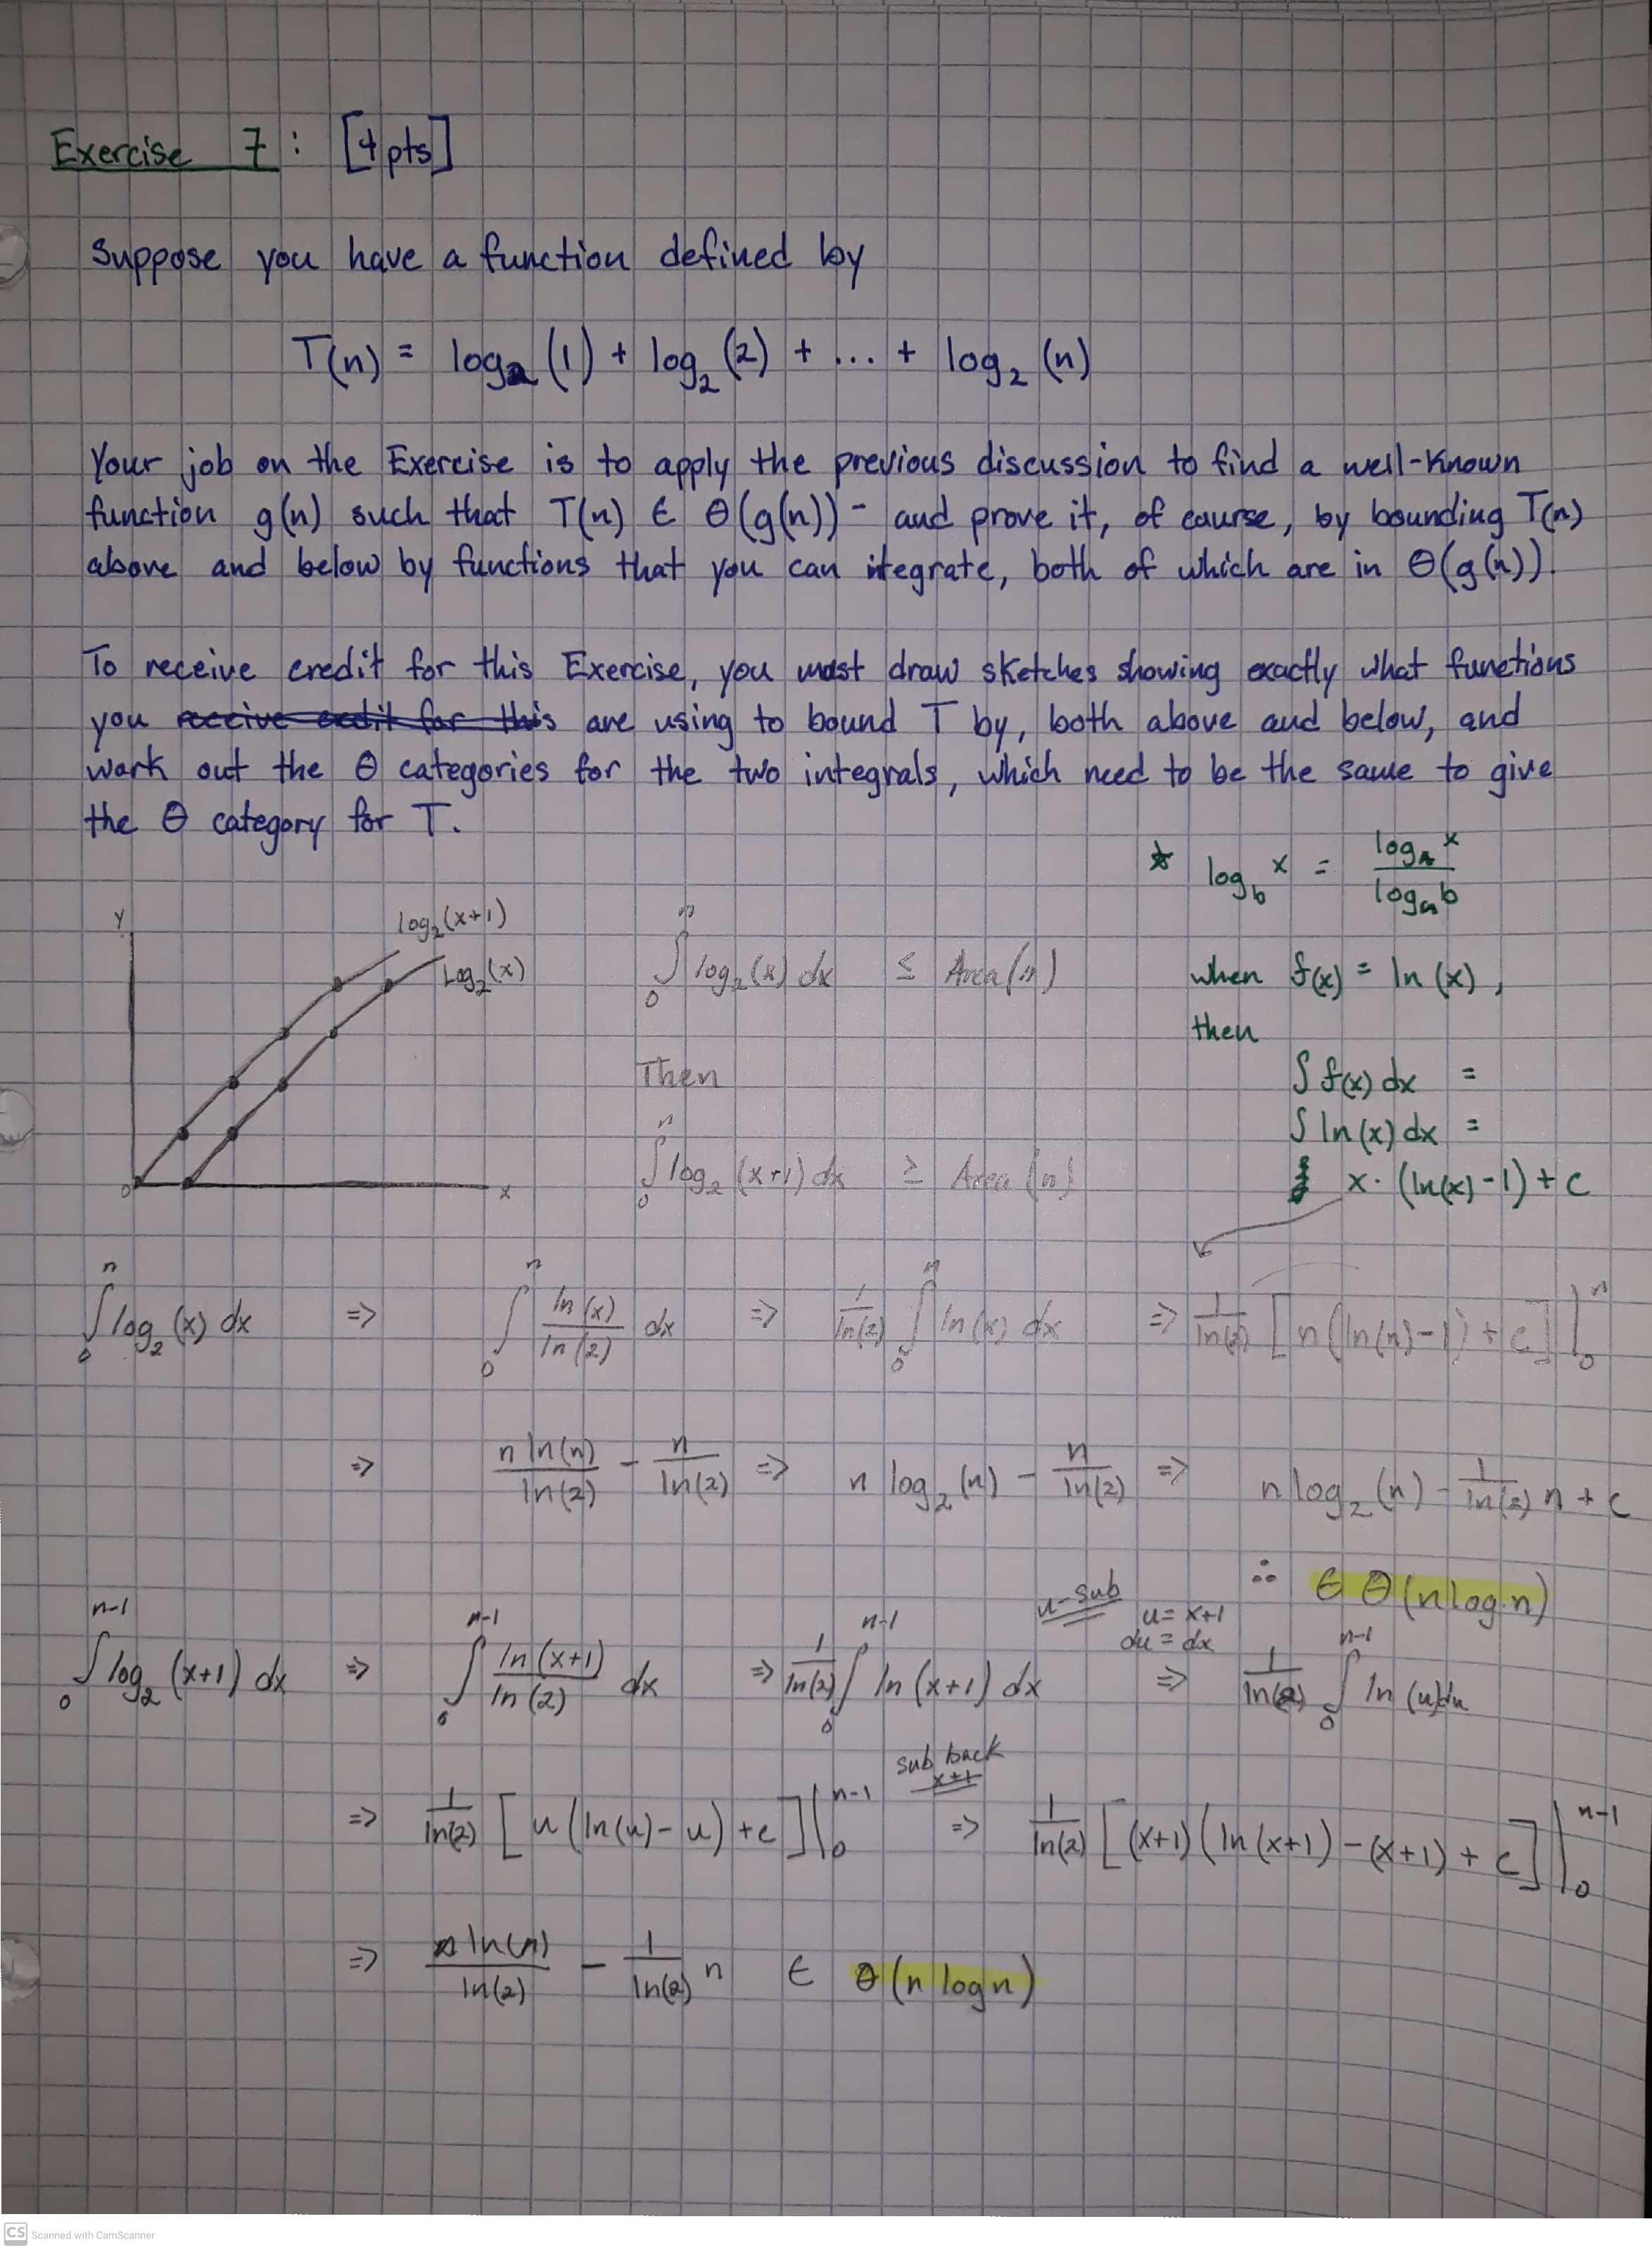 Exercise 7: [4 pts]
Suppose you have a function defined by
T(n) = log₂(1) + log₂(2) + ... + log₂(n)
Your job on the Exercise is to apply the previous discussion to find a well-known
function g(n) such that T(n) ∈ Θ(g(n)) - and prove it, of course, by bounding T(n)
above and below by functions that you can itegrate, both of which are in Θ(g(n)).
To receive credit for this Exercise, you must draw sketches showing exactly what functions
you receive credit for this are using to bound T by, both above and below, and
work out the Θ categories for the two integrals, which need to be the same to give
the Θ category for T.
* log_b x = log_a x / log_a b
Y
log₂(x+1)
Log₂(x)
0
x
∫₀ⁿ log₂(x) dx ≤ Area(n)
Then
∫₀ⁿ log₂(x+1) dx ≥ Area(n)
when f(x) = ln(x),
then
∫ f(x) dx =
∫ ln(x) dx =
x · (ln(x) - 1) + C
∫₀ⁿ log₂(x) dx ⇒ ∫₀ⁿ ln(x)/ln(2) dx ⇒ 1/ln(2) ∫₀ⁿ ln(x) dx ⇒ 1/ln(2) [n(ln(n)-1) + c] |₀ⁿ
⇒ n ln(n)/ln(2) - n/ln(2) ⇒ n log₂(n) - n/ln(2) ⇒ n log₂(n) - 1/ln(2) n + c
∴ ∈ Θ(n log n)
u-sub
u = x+1
du = dx
∫₀ⁿ⁻¹ log₂(x+1) dx ⇒ ∫₀ⁿ⁻¹ ln(x+1)/ln(2) dx ⇒ 1/ln(2) ∫₀ⁿ⁻¹ ln(x+1) dx ⇒ 1/ln(2) ∫₀ⁿ⁻¹ ln(u)du
sub back
x+1
⇒ 1/ln(2) [u(ln(u) - u) + c] |₀ⁿ⁻¹ ⇒ 1/ln(2) [(x+1)(ln(x+1) - (x+1) + c] |₀ⁿ⁻¹
⇒ n ln(n)/ln(2) - 1/ln(2) n ∈ Θ(n log n)
CS Scanned with CamScanner